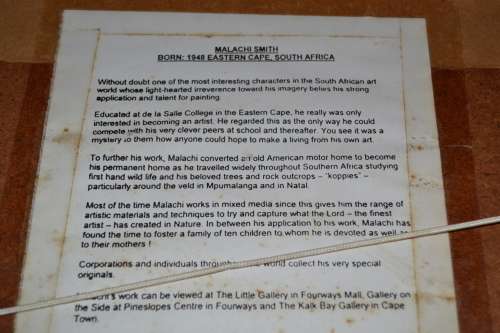 MALACHI SMITH
BORN: 1948 EASTERN CAPE, SOUTH AFRICA
Without doubt one of the most interesting characters in the South African art
world whose light-hearted irreverence toward his imagery belies his strong
application and talent for painting.
Educated at de la Salle College in the Eastern Cape, he really was only
interested in becoming an artist. He regarded this as the only way he could
compete with his very clever peers at school and thereafter. You see it was a
mystery to them how anyone could hope to make a living from his own art.
To further his work, Malachi converted an old American motor home to become
his permanent home as he travelled widely throughout Southern Africa studying
first hand wild life and his beloved trees and rock outcrops – "koppies" –
particularly around the veld in Mpumalanga and in Natal.
Most of the time Malachi works in mixed media since this gives him the range of
artistic materials and techniques to try and capture what the Lord – the finest
artist – has created in Nature. In between his application to his work, Malachi has
found the time to foster a family of ten children to whom he is devoted as well as
to their mothers !
Corporations and individuals throughout the world collect his very special
originals.
Malachi's work can be viewed at The Little Gallery in Fourways Mall, Gallery on
the Side at Pineslopes Centre in Fourways and The Kalk Bay Gallery in Cape
Town.